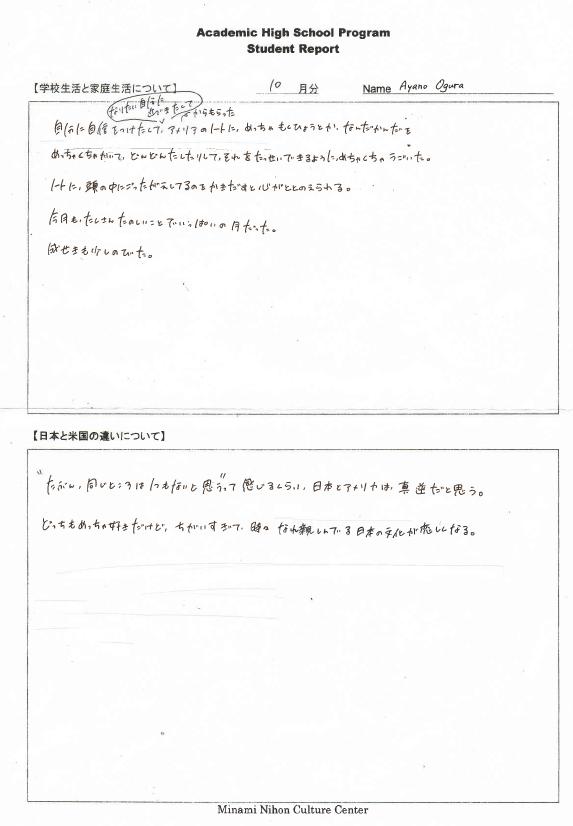 Academic High School Program
Student Report
【学校生活と家庭生活について】 10 月分 Name Ayano Ogura
なりたい自分に
近づきたくて
からもらった
自分に自信をつけたくて、アメリアのノートに、めっちゃもくひょうとか、なんだかんだを
めっちゃくちゃかいて、どんどんたしたりして、それをたっせいできるように、めちゃくちゃうごいた。
ノートに、頭の中にごったがえしてるのをかきだすと心がととのえられる。
今月も、たくさんたのしいことでいっぱいの月だった。
成せきも少しのびた。
【日本と米国の違いについて】
"たぶん、同じところは1つもないと思う"って感じるくらい、日本とアメリカは、真逆だと思う。
どっちもめっちゃ好きだけど、ちがいすぎて、時々なれ親しんでる日本の文化が恋しくなる。
Minami Nihon Culture Center